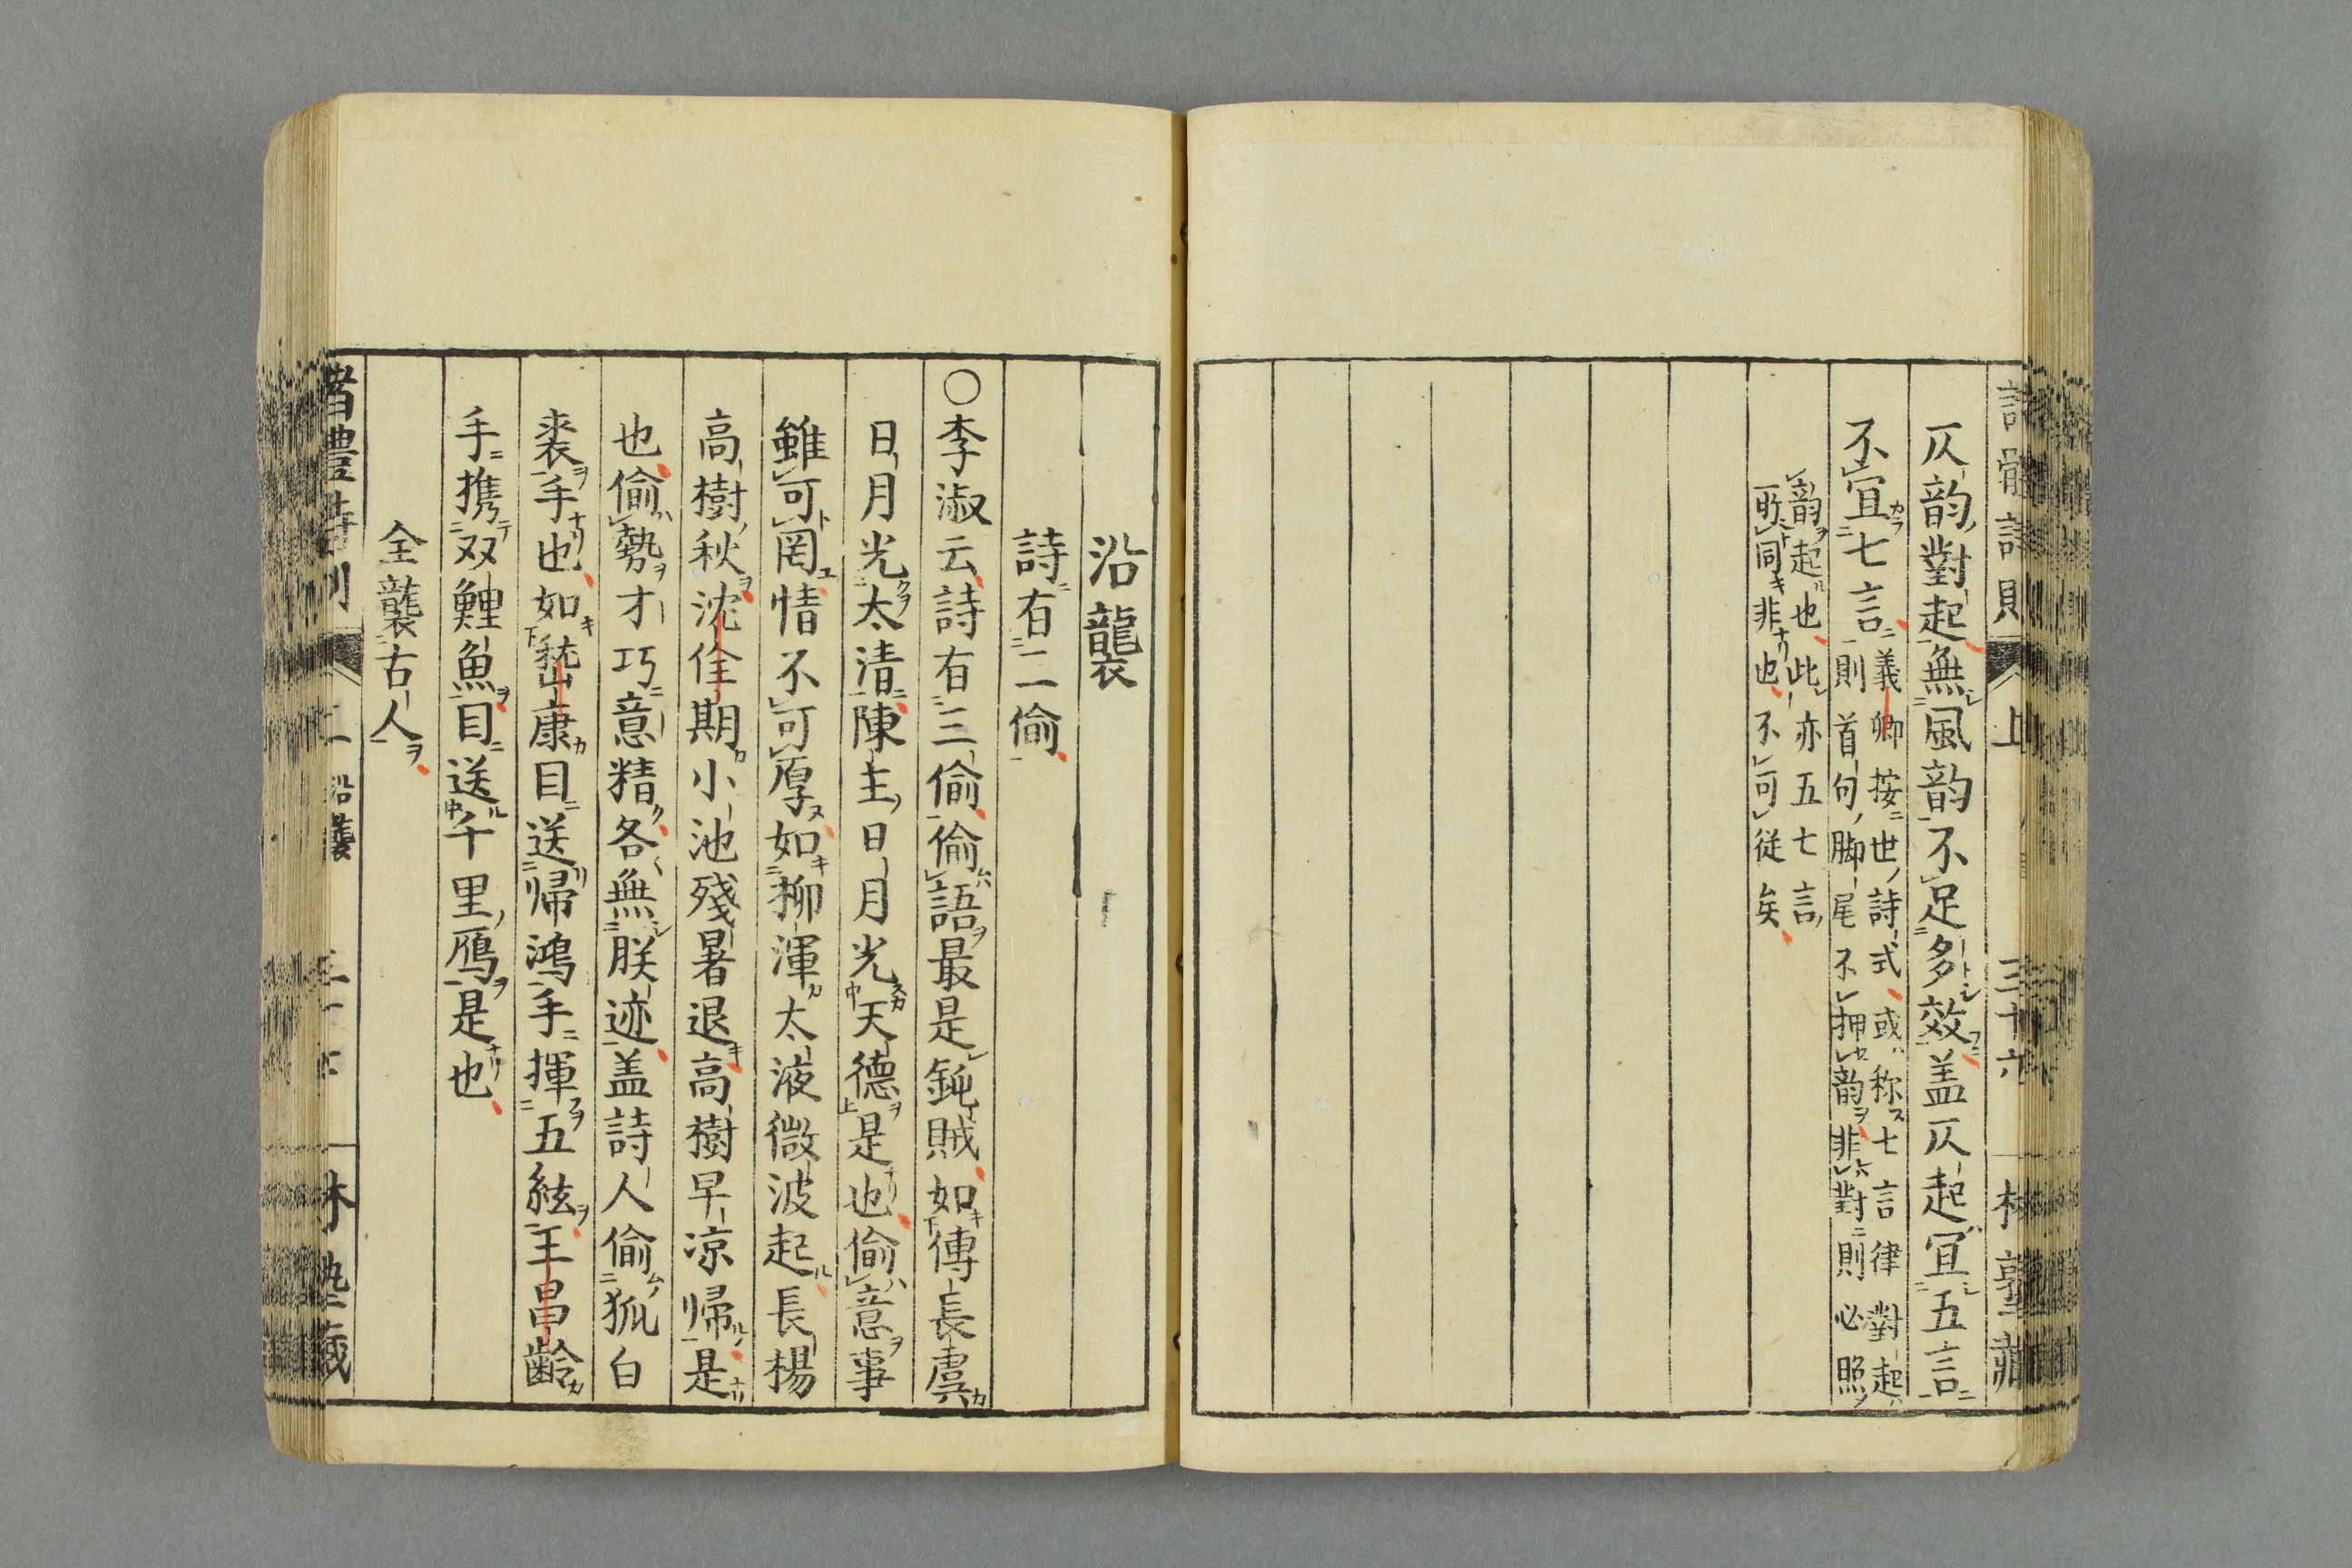 仄韵對起無風韵不足多效盖仄起宜五言
不宜七言
義卿按世詩式或称七言律對起
則首句脚尾不押韵非對則必照
韵起也此亦五七言
所同非也不可従矣
沿襲
詩有二偷
〇李淑云詩有三偷偷語最是鈍賊如傅長虞
日月光太清陳主日月光天德是也偷意事
雖可罔情不可厚如柳渾太液微波起長楊
高樹秋沈佺期小池殘暑退高樹早凉帰是
也偷勢才巧意精各無朕迹盖詩人偷狐白
裘手也如嵇康目送帰鴻手揮五絃王昌齢
手携双鯉魚目送千里鴈是也
全襲古人